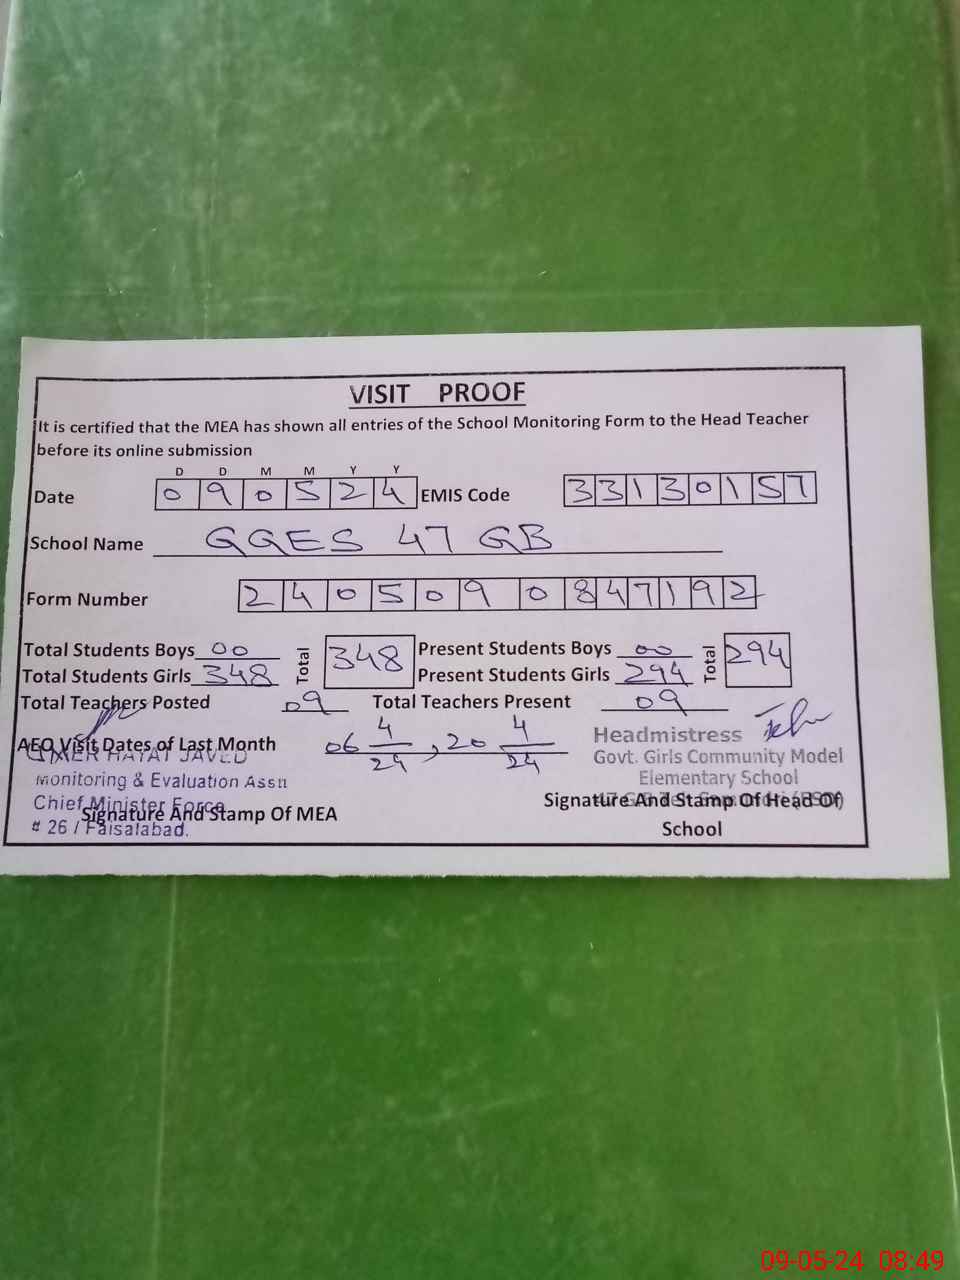 VISIT PROOF
It is certified that the MEA has shown all entries of the School Monitoring Form to the Head Teacher
before its online submission
D D M M Y Y
Date 0 9 0 5 2 4 EMIS Code 3 3 1 3 0 1 5 7
School Name GGES 47 GB
Form Number 2 4 0 5 0 9 0 8 4 7 1 9 2
Total Students Boys 00 Total 348 Present Students Boys 00 Total 294
Total Students Girls 348 Present Students Girls 294
Total Teachers Posted 09 Total Teachers Present 09
AEO Visit Dates of Last Month 06 4/24, 20 4/24
UMER HAYAT JAVED
Monitoring & Evaluation Assn
Chief Minister Force
# 26 / Faisalabad.
Signature And Stamp Of MEA
Headmistress
Govt. Girls Community Model
Elementary School
Signature And Stamp Of Head Of
School
09-05-24 08:49